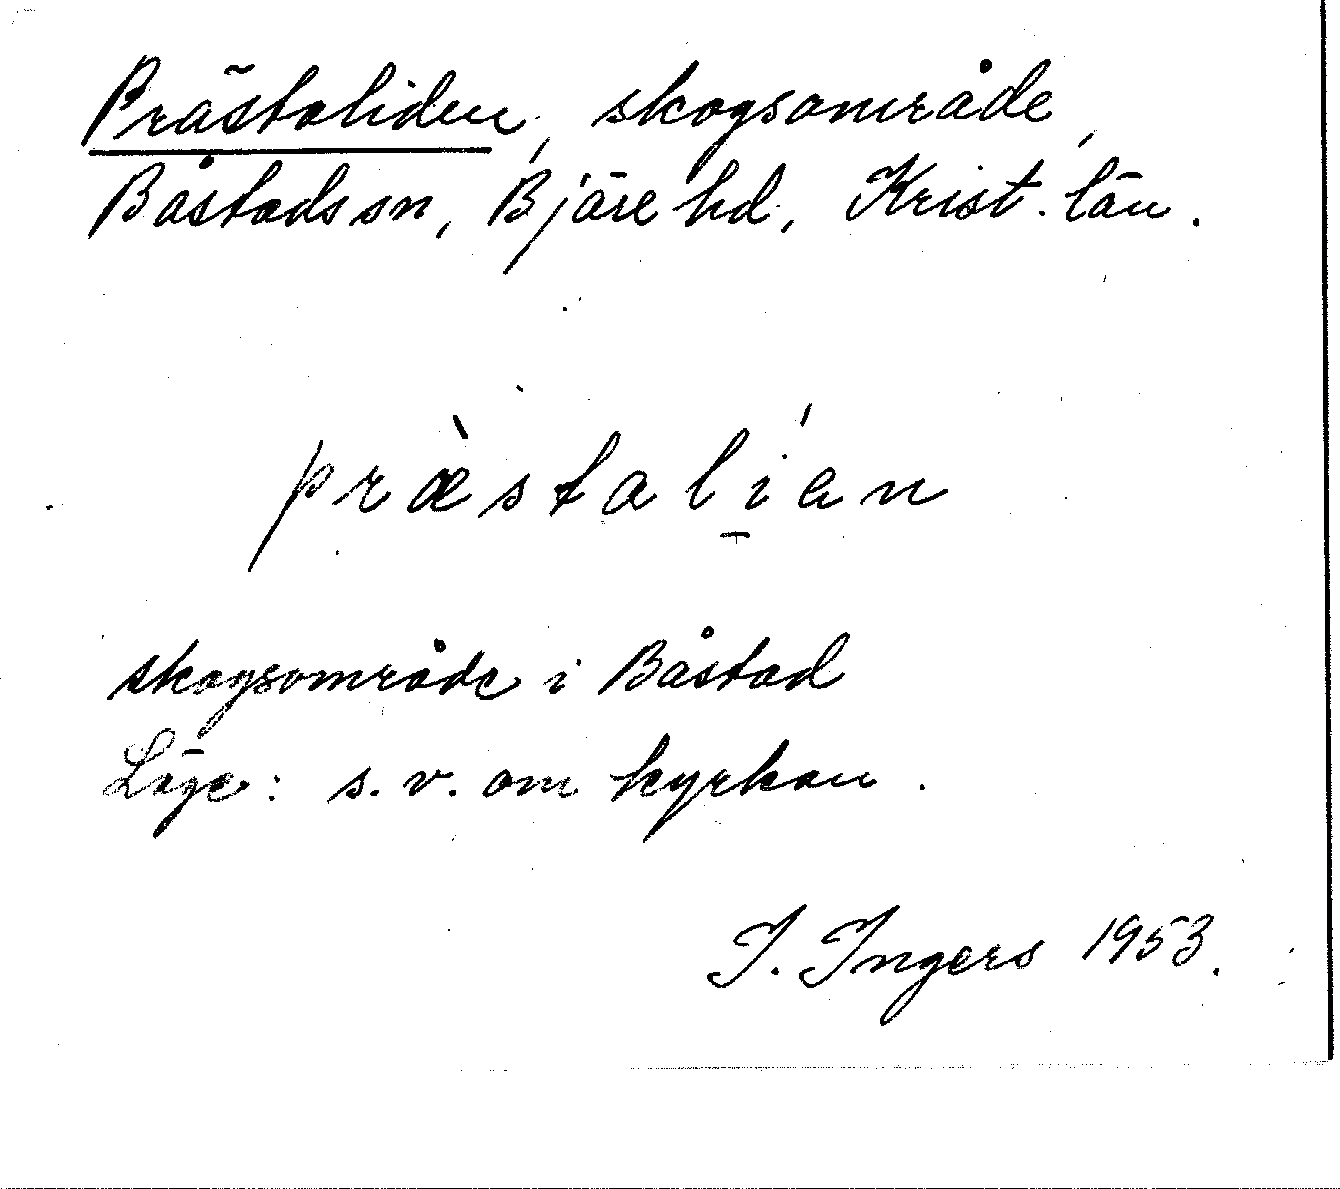 Prästaliden, skogsområde,
Båstads sn, Bjäre hd, Krist. län.
præ̀stalí̱en
skogsområde i Båstad
Läge: s. v. om kyrkan.
I. Ingers 1953.